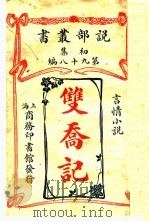 説部叢書
初集
第九十八編
言情小説
雙喬記
上海
商務印書館發行